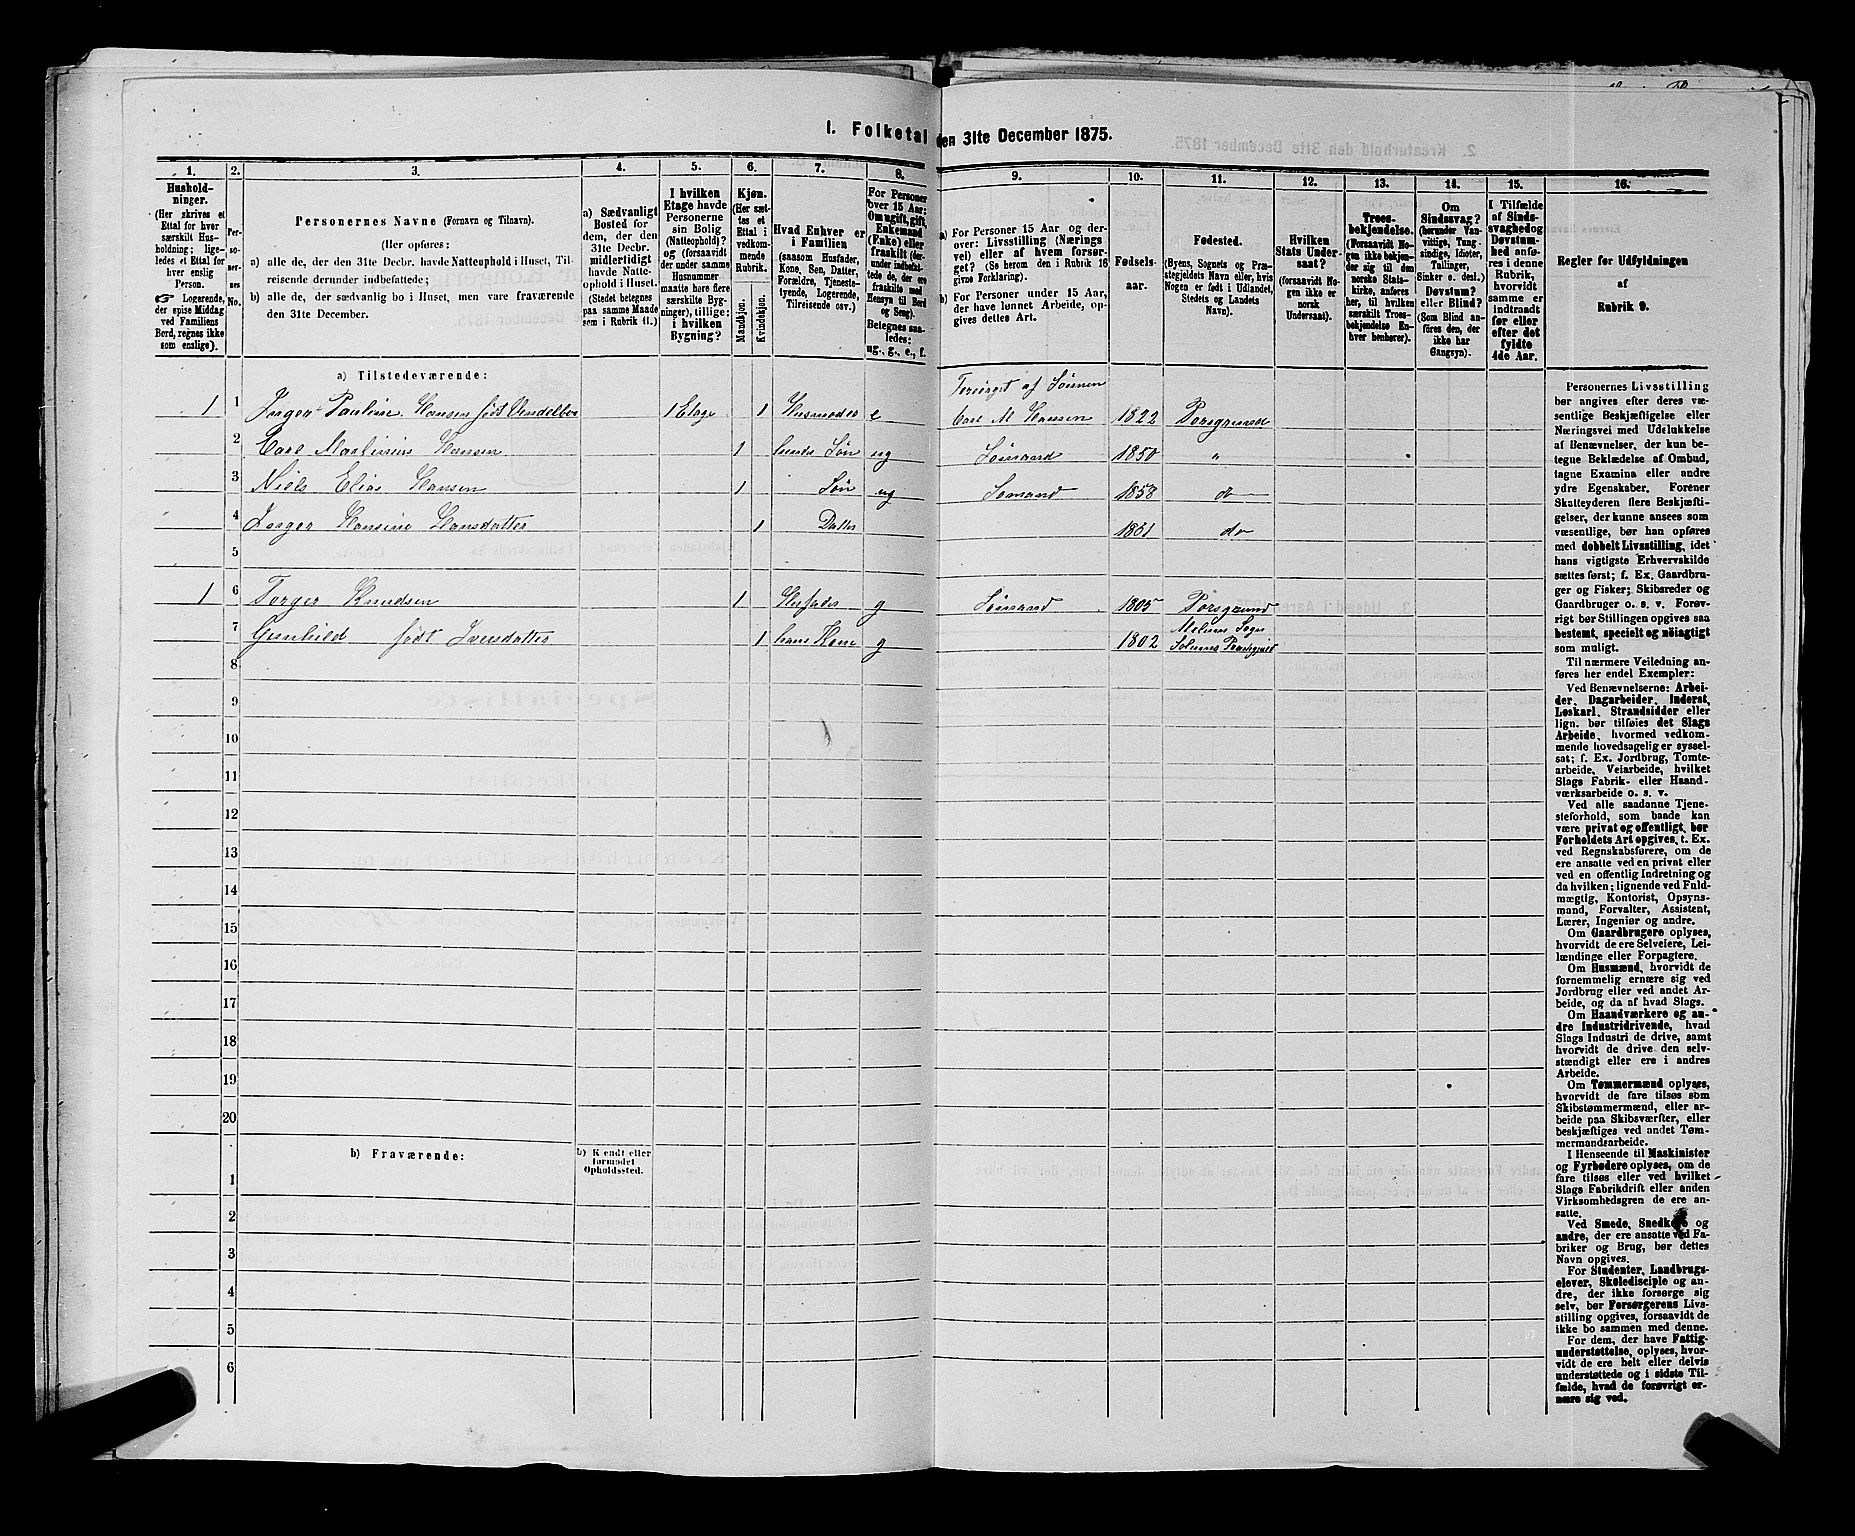 1. Folketal den 31te December 1875.
1. 2. 3. 4. 5. 6. 7. 8. 9. 10. 11. 12. 13. 14. 15. 16.
Hushold-
ninger.
(Her skrives et
Ettal for hver
særskilt Hus-
holdning; lige-
ledes et Ettal for
hver enslig
Person.
☞ Logerende,
der spise Middag
ved Familiens
Bord, regnes ikke
som enslige).
Per-
so-
ner-
nes
No.
Personernes Navne (Fornavn og Tilnavn).
(Her opføres:
a) alle de, der den 31te Decbr. havde Natteophold i Huset, Til-
reisende derunder indbefattede;
b) alle de, der sædvanlig bo i Huset, men vare fraværende
den 31te December.
a) Sædvanligt
Bosted for
dem, der den
31te Decbr.
midlertidigt
havde Natte-
ophold i Huset.
(Stedet betegnes
paa samme Maade
som i Rubrik 11.)
I hvilken
Etage havde
Personerne
sin Bolig
(Natteophold)?
og (forsaavidt
der under samme
Husnummer
maatte høre flere
særskilte Byg-
ninger), tillige:
i hvilken
Bygning?
Kjøn.
(Her sæt-
tes et
Ettal i
vedkom-
mende
Rubrik.
Mandkjøn.
Kvindekjøn.
Hvad Enhver er
i Familien
(saasom Husfader,
Kone, Søn, Datter,
Forældre, Tjeneste-
tyende, Logerende,
Tilreisende osv.)
For Personer
over 15 Aar:
Om ugift, gift,
Enkemand
(Enke) eller
fraskilt (der-
under indbefat-
tede de, der ere
fraskilte med
Hensyn til Bord
og Seng).
Betegnes saa-
ledes:
ug., g., e., f.
a) For Personer 15 Aar og der-
over: Livsstilling (Nærings
vei) eller af hvem forsør-
get? (Se herom den i Rubrik 16
givne Forklaring).
b) For Personer under 15 Aar,
der have lønnet Arbeide, op-
gives dettes Art.
Fødsels-
aar.
Fødested.
(Byens, Sognets og Præ-
stegjeldets Navn eller, hvis
Nogen er født i Udlandet,
Stedets og Landets
Navn).
Hvilken
Stats Under-
saat?
(forsaavidt No-
gen ikke er
norsk
Undersaat).
Troes-
bekjendelse.
(Forsaavidt No-
gen ikke bekjen-
der sig til den
norske Stats-
kirke, anføres
her, til hvilken
særskilt Troes-
bekjendelse En-
hver henhører).
Om
Sindssvag?
(herunder Van-
vittige, Tung-
sindige, Idioter,
Tullinger,
Sinker o. desl.)
Døvstum?
eller Blind?
(Som Blind an-
føres den, der
ikke har
Gangsyn).
I Tilfælde
af Sinds-
svaghed og
Døvstum-
hed anfø-
res i denne
Rubrik,
hvorvidt
samme er
indtraadt
før eller
efter det
fyldte
4de Aar.
Regler for Udfyldningen
af
Rubrik 9.
a) Tilstedeværende:
Forsørget af Sønnen
1 1 Inger Pauline Hansen født Vendelboe 1 Etage 1 Husmoder e Carl M Hansen 1822 Porsgrund
2 Carl Martinius Hansen 1 hendes Søn ug Sømand 1850 "
3 Niels Elias Hansen 1 Søn ug Sømand 1858 do
4 Inger Hansine Hansdatter 1 Datter 1861 do
5
1 6 Torger Knudsen 1 Husfader g Sømand 1805 Porsgrund
7 Gunhild født Iversdatter 1 hans Kone g 1802 Melums Sogn
Solums Præstegjeld
8
9
10
11
12
13
14
15
16
17
18
19
20
b) Fraværende:
b) Kjendt eller
formodet
Opholdssted.
1
2
3
4
5
6
Personernes Livsstilling
bør angives efter deres væ-
sentlige Beskjæftigelse eller
Næringsvei med Udelukkelse
af Benævnelser, der kun be-
tegne Beklædelse af Ombud,
tagne Examina eller andre
ydre Egenskaber. Forener
Skatteyderen flere Beskjæfti-
gelser, der kunne ansees som
væsentlige, bør han opføres
med dobbelt Livsstilling, idet
hans vigtigste Erhvervskilde
sættes først; f. Ex. Gaardbru-
ger og Fisker; Skibsreder og
Gaardbruger o. s. v. Forøv-
rigt bør Stillingen opgives saa
bestemt, specielt og nöiagtigt
som muligt.
Til nærmere Veiledning an-
føres her endel Exempler:
Ved Benævnelserne: Arbei-
der, Dagarbeider, Inderst,
Løskarl, Strandsidder eller
lign. bør tilføies det Slags
Arbeide, hvormed vedkom-
mende hovedsagelig er syssel-
sat; f. Ex. Jordbrug, Tomte-
arbeide, Veiarbeide, hvilket
Slags Fabrik- eller Haand-
værksarbeide o. s. v.
Ved alle saadanne Tjene-
steforhold, som baade kan
være privat og offentligt, bør
Forholdets Art opgives, t. Ex.
ved Regnskabsførere, om de
ere ansatte ved en privat eller
ved en offentlig Indretning og
da hvilken; lignende ved Fuld-
mægtig, Kontorist, Opsyns-
mand, Forvalter, Assistent,
Lærer, Ingeniør og andre.
Om Gaardbrugere oplyses,
hvorvidt de ere Selveiere, Lei-
lændinge eller Forpagtere.
Om Husmænd, hvorvidt de
fornemmelig ernære sig ved
Jordbrug eller ved andet Ar-
beide, og da af hvad Slags.
Om Haandværkere og an-
dre Industridrivende, hvad
Slags Industri de drive, samt
hvorvidt de drive den selv-
stændigt eller ere i andres
Arbeide.
Om Tømmermænd oplyses,
hvorvidt de fare tilsøs som
Skibstømmermænd, eller ar-
beide paa Skibsværfter, eller
beskjæftiges ved andet Tøm-
mermandsarbeide.
I Henseende til Maskinister
og Fyrbødere oplyses, om de
fare tilsøs eller ved hvilket
Slags Fabrikdrift eller anden
Virksomhedsgren de ere an-
satte.
Ved Smede, Snedkere og
andre, der ere ansatte ved Fa-
briker og Brug, bør dettes
Navn opgives.
For Studenter, Landbrugs-
elever, Skoledisciple og an-
dre, der ikke forsørge sig
selv, bør Forsørgerens Livs-
stilling opgives, forsaavidt de
ikke bo sammen med denne.
For dem, der have Fattig-
understøttelse, oplyses, hvor-
vidt de ere helt eller delvis
understøttede og i sidste Til-
fælde, hvad de forøvrigt er-
nære sig ved.